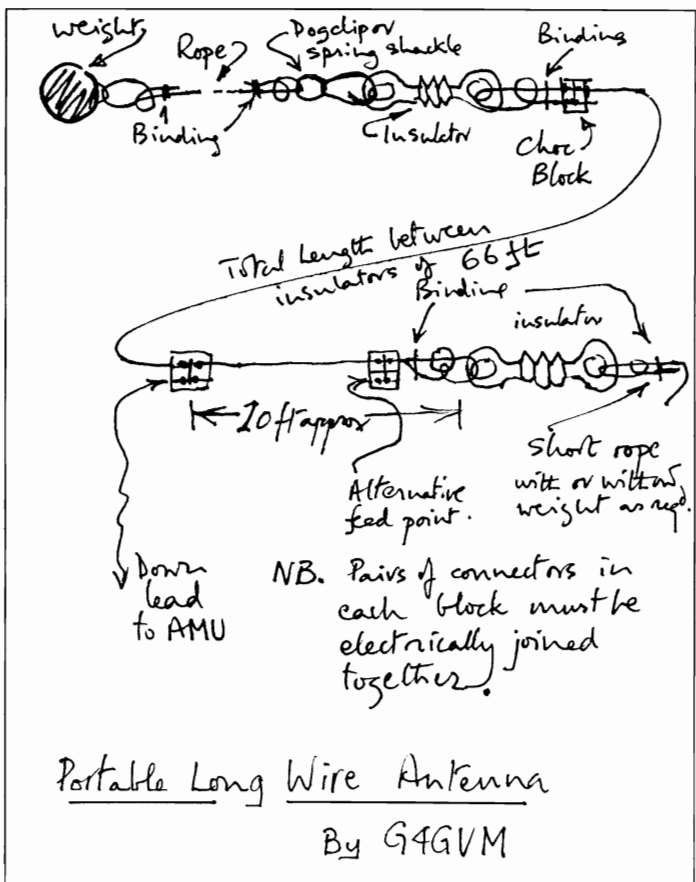 weight
Rope
Dogclip or
spring shackle
Binding
Binding
Insulator
Choc
Block
Total Length between
insulators of 66 ft
Binding
insulator
20 ft approx
Alternative
feed point.
short rope
with or without
weight as reqd.
Down
lead
to AMU
NB. Pairs of connectors in
each block must be
electrically joined
together.
Portable Long Wire Antenna
By G4GVM